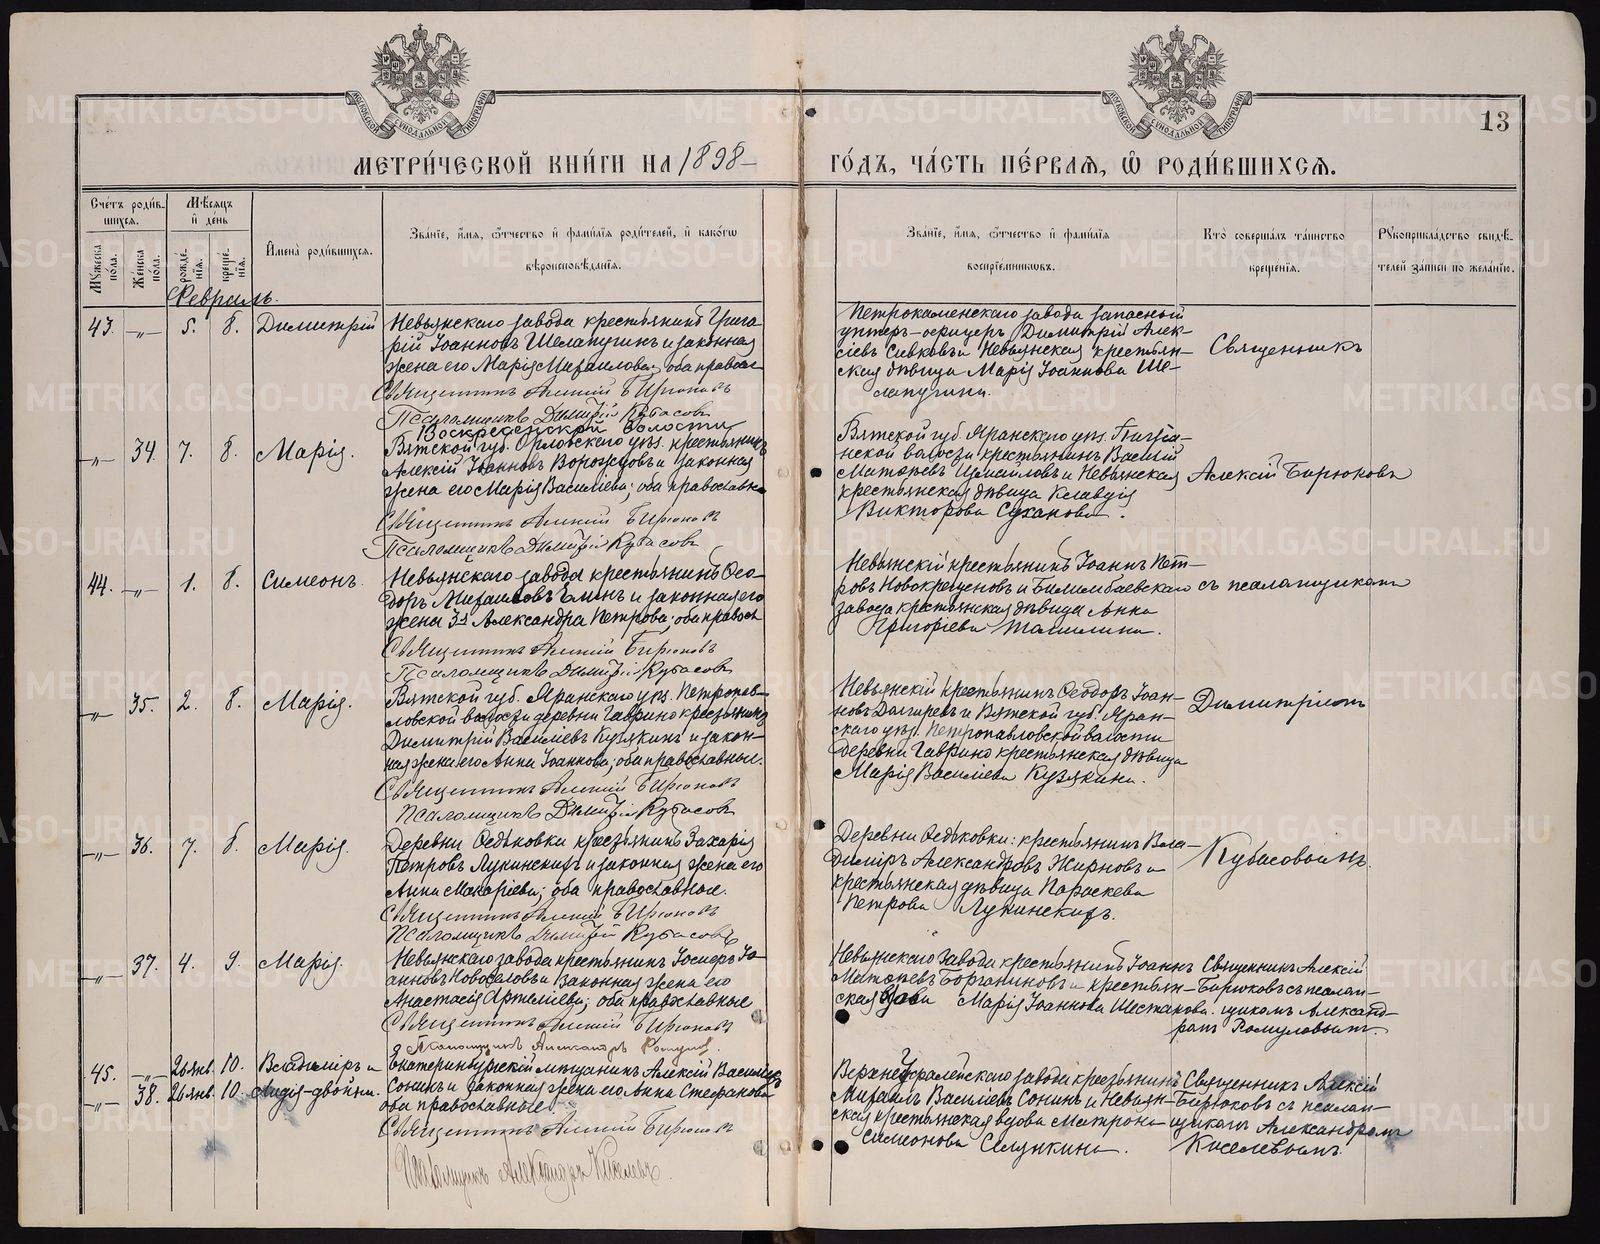 13
МЕТРИ́ЧЕСКОЙ КНИ́ГИ НА 1898 ГО́ДЪ, ЧА́СТЬ ПЕ́РВАЯ, Ѡ҆ РОДИ́ВШИХСЯ.
Сче́тъ роди́в-
шихся.
Мꙋ́жеска по́ла.
Же́нска по́ла.
Мѣ́сяцъ
и҆ де́нь
рожде́-
нїя.
креще́-
нїя.
И҆мена̀ роди́вшихся.
Зва́нїе, и҆́мя, ѻ҆́тчество и҆ фами́лїя роди́телей, и҆ како́гѡ
вѣроисповѣ́данїя.
Зва́нїе, и҆́мя, ѻ҆́тчество и҆ фами́лїя
воспрїе́мниковъ.
Кто̀ соверша́лъ та́инство
креще́нїя.
Рꙋкоприкла́дство свидѣ́-
телей за́писи по жела́нїю.
Февраль.
43. —„— 5. 8. Димитрій
Невьянскаго завода крестьянинъ Григо-
рій Іоанновъ Шелапугинъ и законная
жена его Марія Михаилова, оба правосл
Священникъ Алексій Бирюковъ
Псаломщикъ Димитрій Кубасовъ
Петрокаменскаго завода запасный
унтеръ-офицеръ Димитрій Алек-
сіевъ Сивковъ и Невьянская крестьян-
ская дѣвица Марія Іоаннова Ше-
лапугина.
Священникъ
—„— 34. 7. 8. Марія.
Воскресенской волости
Вятской губ. Орловскаго уѣз. крестьянинъ
Алексій Іоанновъ Ворожцовъ и законная
жена его Марія Василіева; оба православн
Священникъ Алексій Бирюковъ
Псаломщикъ Димитрій Кубасовъ
Вятской губ. Яранскаго уѣз.
ской волости крестьянинъ Василій
Матѳеевъ Измаиловъ и Невьянская
крестьянская дѣвица Клавдія
Викторова Суханова.
Алексій Бирюковъ
44. —„— 1. 8. Симеонъ.
Невьянскаго завода крестьянинъ Ѳео-
доръ Михаиловъ и законная его
жена Александра Петрова; оба правосл
Священникъ Алексій Бирюковъ
Псаломщикъ Димитрій Кубасовъ
Невьянскій крестьянинъ Іоаннъ Пет-
ровъ Новокрещеновъ и Билимбаевскаго
завода крестьянская дѣвица Анна
Григоріева Томилина.
съ псаломщикомъ
—„— 35. 2. 8. Марія.
Вятской губ. Яранскаго уѣз. Петропав-
ловской волости деревни Гаврино крестьянинъ
Димитрій Василіевъ Кузякинъ и закон-
ная жена его Анна Іоаннова; оба православные.
Священникъ Алексій Бирюковъ
Псаломщикъ Димитрій Кубасовъ
Невьянскій крестьянинъ Ѳеодоръ Іоан-
новъ Долгиревъ и Вятской губ. Яран-
скаго уѣз. Петропавловской волости
деревни Гаврино крестьянская дѣвица
Марія Василіева Кузякина.
Димитріемъ
—„— 36. 7. 8. Марія.
Деревни Ѳедьковки крестьянинъ Захарія
Петровъ Лукинскихъ и законная жена его
Анна Макаріева; оба православные.
Священникъ Алексій Бирюковъ
Псаломщикъ Димитрій Кубасовъ
Деревни Ѳедьковки: крестьянинъ Вла-
диміръ Александровъ Жирновъ и
крестьянская дѣвица Параскева
Петрова Лукинскихъ.
Кубасовымъ.
—„— 37. 4. 9. Марія.
Невьянскаго завода крестьянинъ Іосифъ Іо-
анновъ Новоселовъ и законная жена его
Анастасія Артеміева; оба православные
Священникъ Алексій Бирюковъ
Псаломщикъ Александръ Ромуловъ.
Невьянскаго завода крестьянинъ Іоаннъ
Матѳеевъ и крестьян-
ская вдова Марія Іоаннова Шестакова.
Священникъ Алексій
Бирюковъ съ псалом-
щикомъ Александ-
ромъ Ромуловымъ.
45. —„— 26 янв. 10. Владиміръ и
—„— 38. 26 янв. 10. Лидія-двойни.
Екатеринбургскій мѣщанинъ Алексій Василіевъ
Сонинъ и законная жена его Анна Стефанова
оба православные.
Священникъ Алексій Бирюковъ
Псаломщикъ Александръ Киселевъ.
Верхнеуфалейскаго завода крестьянинъ
Михаилъ Василіевъ Сонинъ и Невьян-
ская крестьянская вдова Матрона
Симеонова Селянкина.
Священникъ Алексій
Бирюковъ съ псалом-
щикомъ Александромъ
Киселевымъ.
METRIKI.GASO-URAL.RU